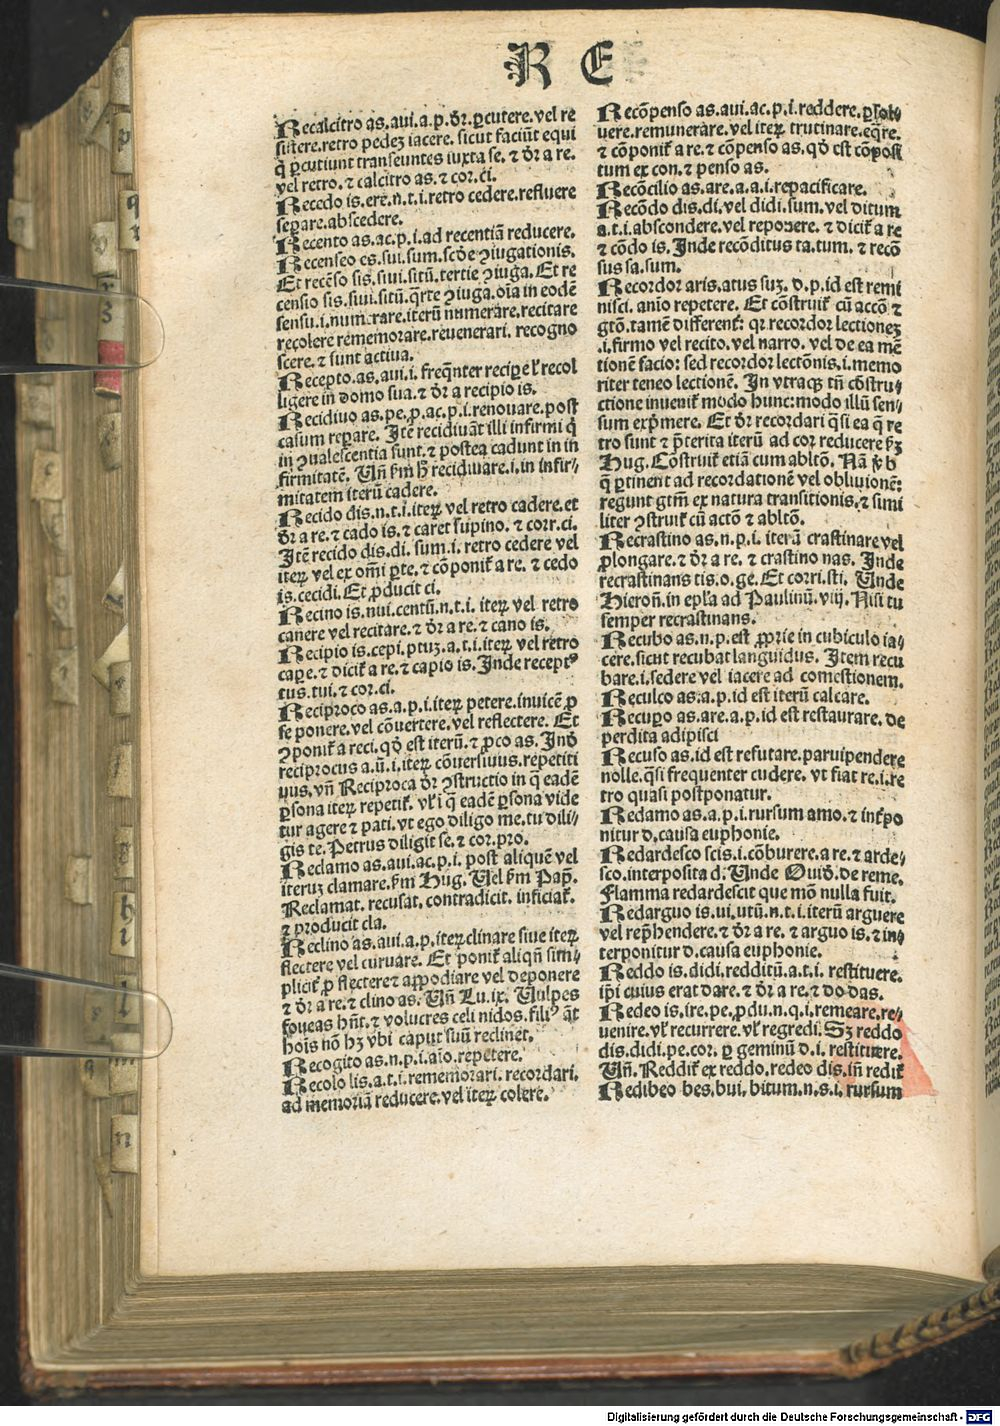 R E
Recalcitro as.aui.a.p.dr̄.ꝑcutere.vel re
sistere.retro pedeꝫ iacere.sicut faciūt equi
q̇ ꝑcutiunt transeuntes iuxta se.⁊ dr̄ a re.
vel retro.⁊ calcitro as.⁊ cor.ci.
Recedo is.ere.n.t.i.retro cedere.refluere
seꝑare.abscedere.
Recento as.ac.p.i.ad recentiā reducere.
Recenseo es.sui.sum.scd̄e ↄiugationis.
Et recēso sis.sui.sitū.tertie ↄiuga. Et re
censio sis.sui.sitū.q̄rte ↄiuga.oīa in eodē
sensu.i.numerare.iterū numerare.recitare
recolere rememorare.reuenerari.recogno
scere.⁊ sunt actiua.
Recepto.as.aui.i.freq̄nter reciꝑe ł recol
ligere in domo sua.⁊ dr̄ a recipio is.
Recidiuo as.pe.ꝓ.ac.p.i.renouare.post
casum reꝑare. Itē recidiuāt illi infirmi q̇
in ↄualescentia sunt.⁊ postea cadunt in in
firmitatē. Un̄ ẜm h̄ recidiuare.i.in infir⸗
mitatem iterū cadere.
Recido dis.n.t.i.iteꝝ vel retro cadere.et
dr̄ a re.⁊ cado is.⁊ caret supino.⁊ corr.ci.
Itē recido dis.di.sum.i.retro cedere vel
iteꝝ vel ex om̄i ꝑte.⁊ cōponit̄ a re.⁊ cedo
is.cecidi.Et ꝓducit ci.
Recino is.nui.centū.n.t.i.iteꝝ vel retro
canere vel recitare.⁊ dr̄ a re.⁊ cano is.
Recipio is.cepi.ptuꝫ.a.t.i.iteꝝ vel retro
caꝑe.⁊ dicit̄ a re.⁊ capio is. Inde receptꝰ
tus.tui.⁊ cor.ci.
Reciproco as.a.p.i.iteꝝ petere.inuicē ꝓ
se ponere.vel cōuertere.vel reflectere. Et
ↄponit̄ a reci.qd̄ est iterū.⁊ ꝓco as. Ind̄
reciprocus a.ū.i.iteꝝ cōuersiuus.repetiti
uus.vn̄ Reciproca dr̄ ↄstructio in q̄ eadē
ꝑsona iteꝝ repetit̄. vł i q̄ eadē ꝑsona vide
tur agere ⁊ pati.vt ego diligo me.tu dili⸗
gis te.Petrus diligit se.⁊ cor.pro.
Reclamo as.aui.ac.p.i.post aliquē vel
iteruꝫ clamare.ẜm Hug. Vel ẜm Pap.
Reclamat.recusat.contradicit.inficiat̄.
⁊ producit cla.
Reclino as.aui.a.p.iteꝝ clinare siue iteꝝ
flectere vel curuare. Et ponit̄ aliqn̄ sim⸗
plicit̄ ꝓ flectere ⁊ appodiare vel deponere
⁊ dr̄ a re.⁊ clino as. Un̄ Lu.ix. Uulpes
foueas hn̄t.⁊ volucres celi nidos.filiꝰ āt
hoīs nō hꝫ vbi caput suū reclinet.
Recogito as.n.p.i.aīo.repetere.
Recolo lis.a.t.i.rememorari.recordari.
ad memoriā reducere.vel iteꝝ colere.
Recōpenso as.aui.ac.p.i.reddere.ꝑsol⸗
uere.remunerare.vel iteꝝ trutinare.eq̄re.
⁊ cōponit̄ a re.⁊ cōpenso as.qd̄ est cōposi
tum ex con.⁊ penso as.
Recōcilio as.are.a.a.i.repacificare.
Recōdo dis.di.vel didi.sum.vel ditum
a.t.i.abscondere.vel reponere.⁊ dicit̄ a re
⁊ cōdo is. Inde recōditus ta.tum.⁊ recō
sus sa.sum.
Recordor aris.atus suꝫ.d.p.id est remi
nisci.anīo repetere. Et cōstruit̄ cū accō ⁊
gtō.tamē different̄: qr recordor lectioneꝫ
.i.firmo vel recito.vel narro.vel de ea mē
tionē facio: sed recordor lectōnis.i.memo
riter teneo lectionē. In vtraqꝫ tn̄ cōstru⸗
ctione inuenit̄ modo hunc:modo illū sen⸗
sum exp̄mere. Et dr̄ recordari q̄si ea q̄ re
tro sunt ⁊ p̄terita iterū ad cor reducere ẜꝫ
Hug. Cōstruit̄ etiā cum abltō. Nā ẜb
q̄ ꝑtinent ad recordationē vel obliuionē:
regunt gtm̄ ex natura transitionis.⁊ simi
liter ↄstruit̄ cū actō ⁊ abltō.
Recrastino as.n.p.i.iterū crastinare vel
ꝓlongare.⁊ dr̄ a re.⁊ crastino nas. Inde
recrastinans tis.o.ge.Et corri.sti. Unde
Hieron̄.in epl̄a ad Paulinū.viij. Nisi tu
semper recrastinans.
Recubo as.n.p.est ꝓprie in cubiculo ia⸗
cere.sicut recubat languidus. Item recu
bare.i.sedere vel iacere ad comestionem.
Reculco as.a.p.id est iterū calcare.
Recuꝑo as.are.a.p.id est restaurare.de
perdita adipisci
Recuso as.id est refutare.paruipendere
nolle.q̄si frequenter cudere.vt fiat re.i.re
tro quasi postponatur.
Redamo as.a.p.i.rursum amo.⁊ int̄po
nitur d.causa euphonie.
Redardesco scis.i.cōburere.a re.⁊ arde⸗
sco.interposita d. Unde Ouid̄.de reme.
Flamma redardescit que mō nulla fuit.
Redarguo is.ui.utū.n.t.i.iterū arguere
vel rep̄hendere.⁊ dr̄ a re.⁊ arguo is.⁊ in⸗
terponitur d.causa euphonie.
Reddo is.didi.redditū.a.t.i.restituere.
ip̄i cuius erat dare.⁊ dr̄ a re.⁊ do das.
Redeo is.ire.pe.ꝓdu.n.q.i.remeare.re⸗
uenire.vł recurrere.vł regredi. Sꝫ reddo
dis.didi.pe.cor.ꝑ geminū d.i.restituere.
Un̄. Reddit̄ ex reddo.redeo dis.in̄ redit̄
Redibeo bes.bui.bitum.n.s.i.rursum
Digitalisierung gefördert durch die Deutsche Forschungsgemeinschaft - DFG